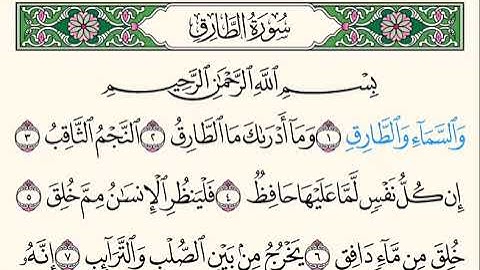 سُورَةُ الطَّارِقِ
بِسْمِ اللَّهِ الرَّحْمَٰنِ الرَّحِيمِ
وَالسَّمَاءِ وَالطَّارِقِ ١ وَمَا أَدْرَىٰكَ مَا الطَّارِقُ ٢ النَّجْمُ الثَّاقِبُ ٣
إِن كُلُّ نَفْسٍ لَّمَّا عَلَيْهَا حَافِظٌ ٤ فَلْيَنظُرِ الْإِنسَٰنُ مِمَّ خُلِقَ ٥
خُلِقَ مِن مَّاءٍ دَافِقٍ ٦ يَخْرُجُ مِنۢ بَيْنِ الصُّلْبِ وَالتَّرَائِبِ ٧ إِنَّهُ